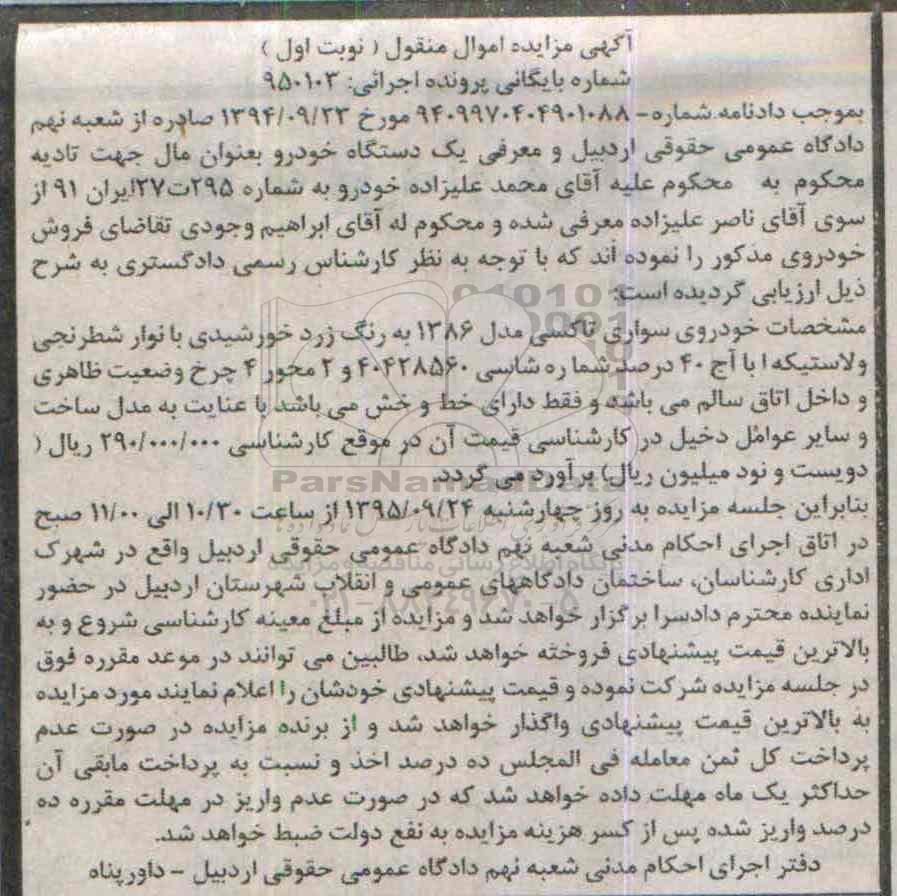 آگهی مزایده اموال منقول ( نوبت اول )
شماره بایگانی پرونده اجرائی: ۹۵۰۱۰۳
بموجب دادنامه شماره- ۹۴۰۹۹۷۰۴۰۴۹۰۱۰۸۸ مورخ ۱۳۹۴/۰۹/۲۳ صادره از شعبه نهم
دادگاه عمومی حقوقی اردبیل و معرفی یک دستگاه خودرو بعنوان مال جهت تادیه
محکوم به محکوم علیه آقای محمد علیزاده خودرو به شماره ۲۹۵ت۲۷ایران ۹۱ از
سوی آقای ناصر علیزاده معرفی شده و محکوم له آقای ابراهیم وجودی تقاضای فروش
خودروی مذکور را نموده اند که با توجه به نظر کارشناس رسمی دادگستری به شرح
ذیل ارزیابی گردیده است:
مشخصات خودروی سواری تاکسی مدل ۱۳۸۶ به رنگ زرد خورشیدی با نوار شطرنجی
ولاستیکها با آج ۴۰ درصد شما ره شاسی ۴۰۴۲۸۵۶۰ و ۲ محور ۴ چرخ وضعیت ظاهری
و داخل اتاق سالم می باشد و فقط دارای خط و خش می باشد با عنایت به مدل ساخت
و سایر عوامل دخیل در کارشناسی قیمت آن در موقع کارشناسی ۲۹۰/۰۰۰/۰۰۰ ریال (
دویست و نود میلیون ریال) بر آورد می گردد.
ParsNamadData
بنابراین جلسه مزایده به روز چهارشنبه ۱۳۹۵/۰۹/۲۴ از ساعت ۱۰/۳۰ الی ۱۱/۰۰ صبح
در اتاق اجرای احکام مدنی شعبه نهم دادگاه عمومی حقوقی اردبیل واقع در شهرک
اداری کارشناسان، ساختمان دادگاههای عمومی و انقلاب شهرستان اردبیل در حضور
نماینده محترم دادسرا برگزار خواهد شد و مزایده از مبلغ معینه کارشناسی شروع و به
بالاترین قیمت پیشنهادی فروخته خواهد شد، طالبین می توانند در موعد مقرره فوق
در جلسه مزایده شرکت نموده و قیمت پیشنهادی خودشان را اعلام نمایند مورد مزایده
به بالاترین قیمت پیشنهادی واگذار خواهد شد و از برنده مزایده در صورت عدم
پرداخت کل ثمن معامله فی المجلس ده درصد اخذ و نسبت به پرداخت مابقی آن
حداکثر یک ماه مهلت داده خواهد شد که در صورت عدم واریز در مهلت مقرره ده
درصد واریز شده پس از کسر هزینه مزایده به نفع دولت ضبط خواهد شد.
دفتر اجرای احکام مدنی شعبه نهم دادگاه عمومی حقوقی اردبیل - داورپناه